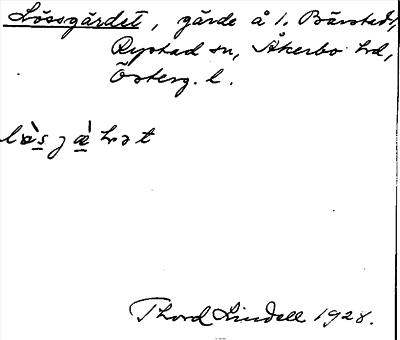 Lössgärdet, gärde å 1. Bärstad,
Rystad sn, Åkerbo hd,
Österg. l.
Thord Lindell 1928.